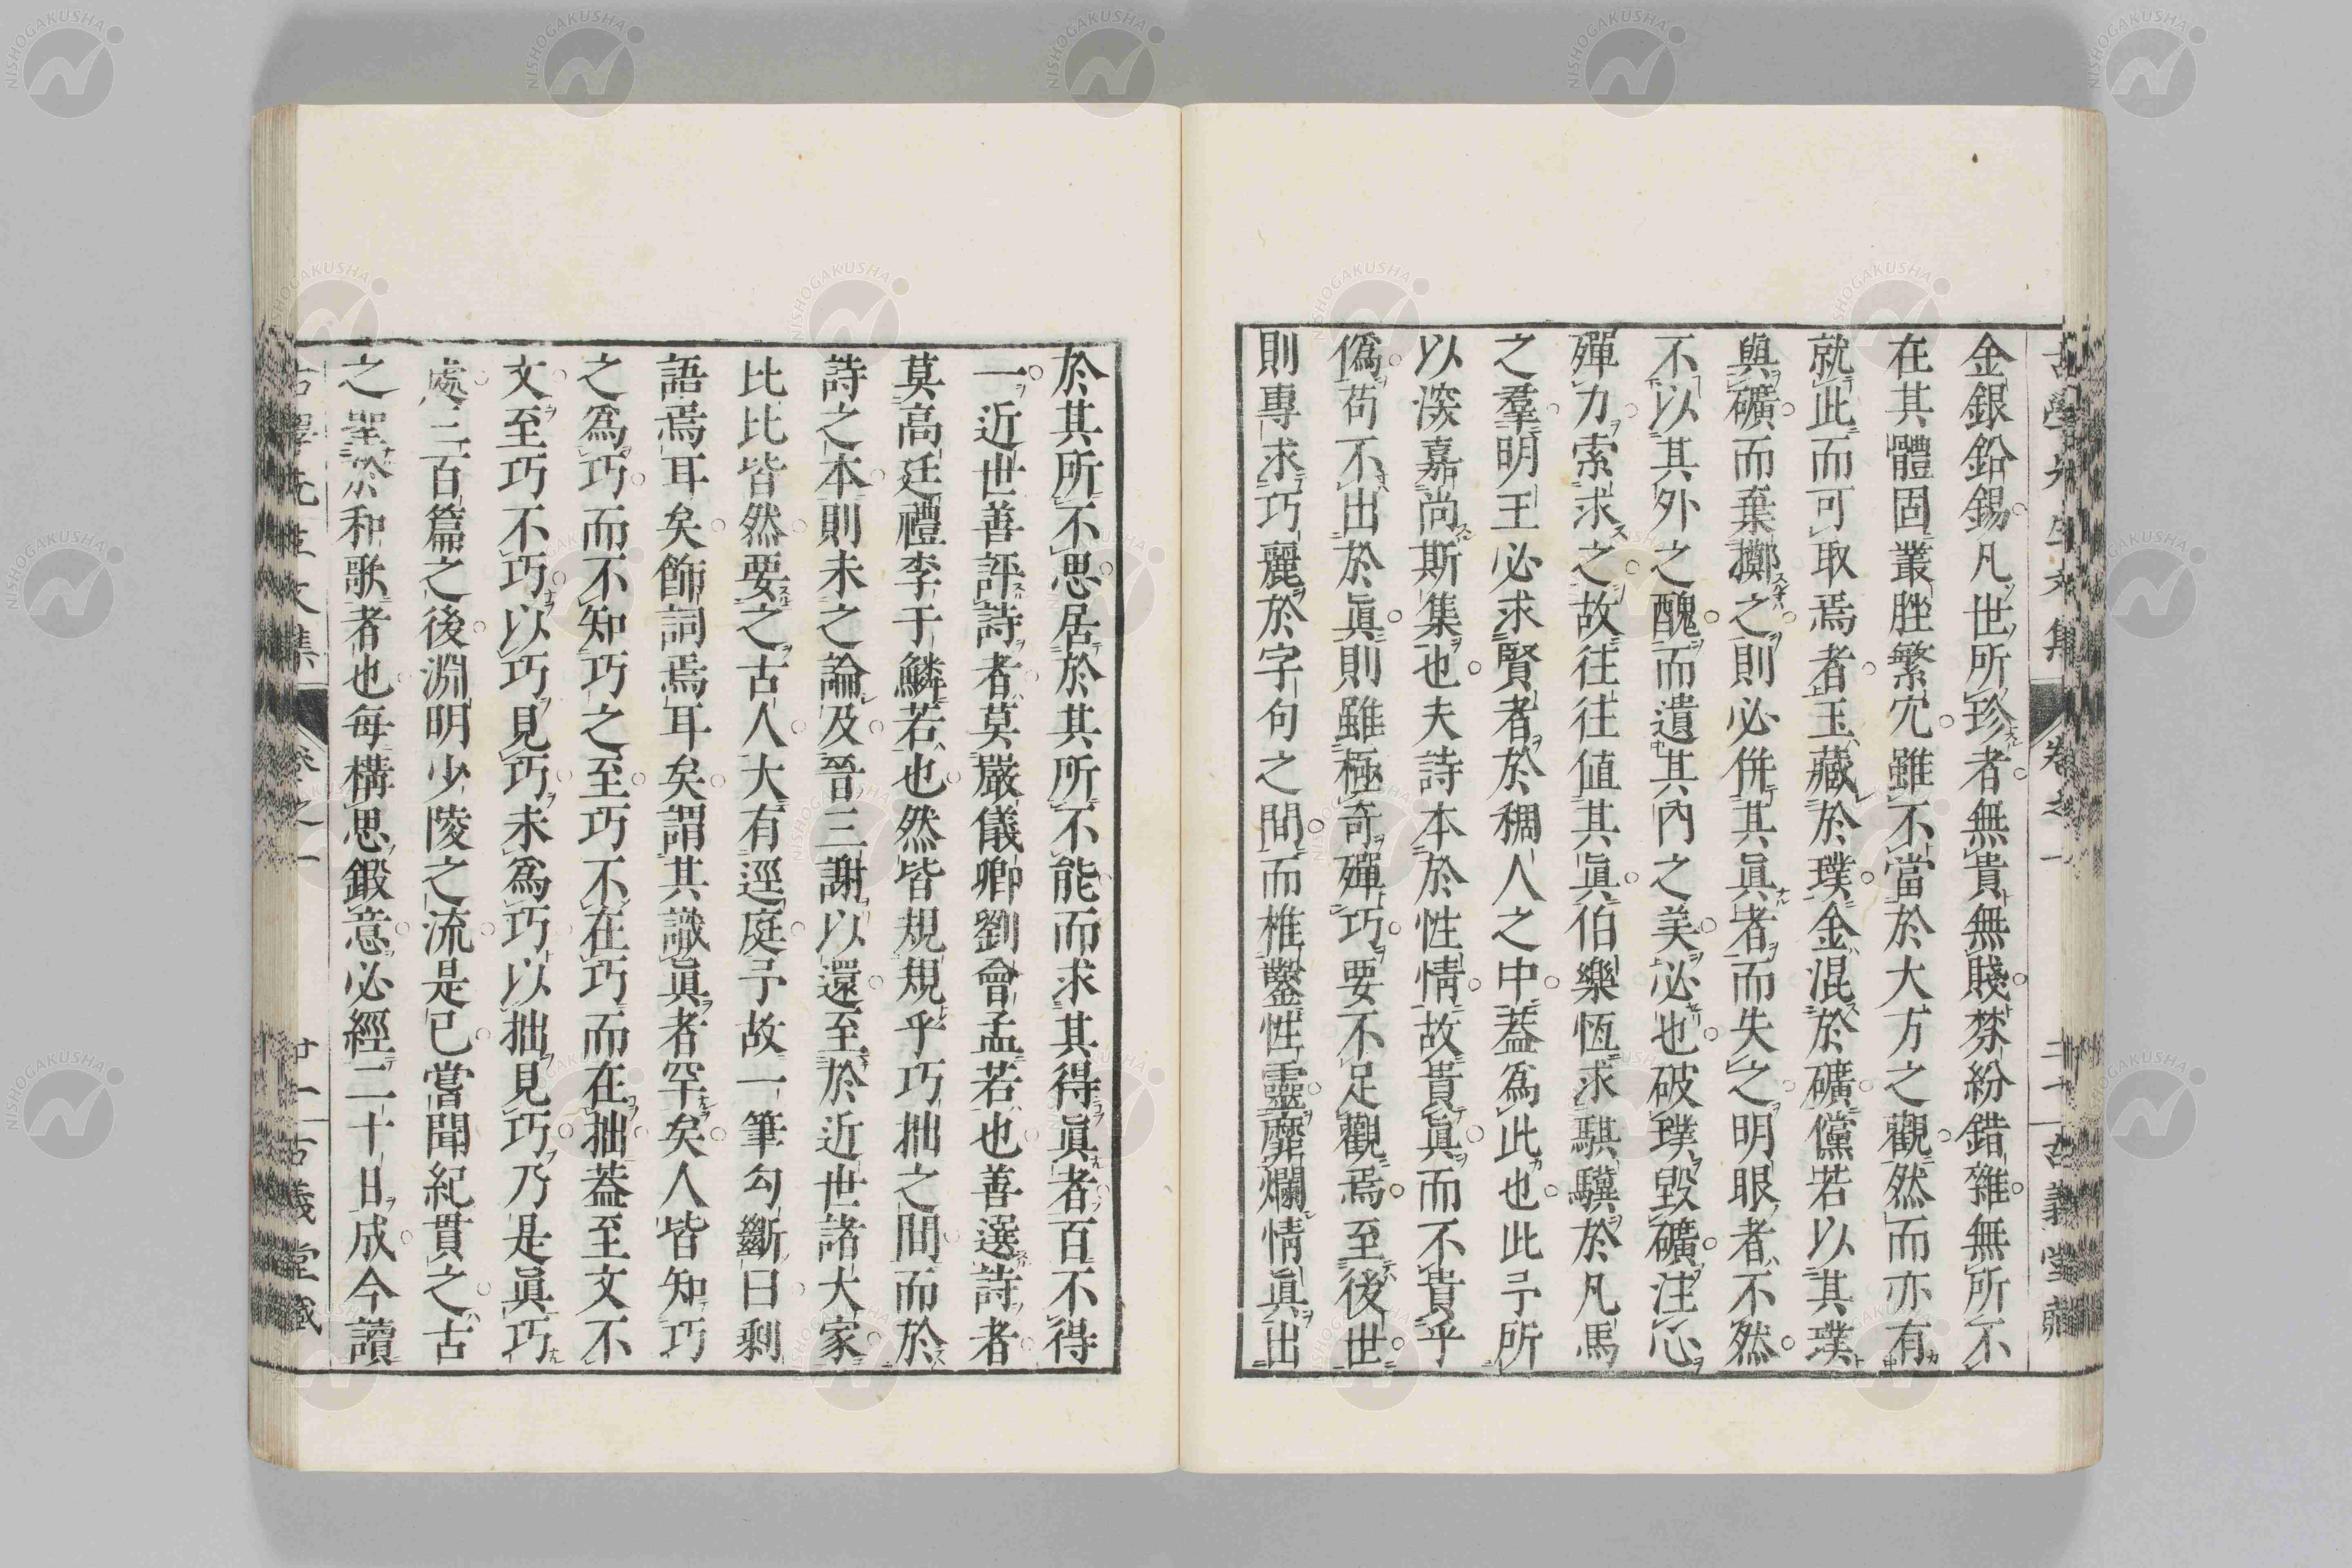 古學先生文集 卷之一 二十 古義堂藏
金銀鉛錫凡世所珍者無貴無賤棼紛錯雜無所不
在其體固叢脞繁冗雖不當於大方之觀然而亦有
就此而可取焉者玉藏於璞金混於礦儻若以其璞
與礦而棄擲之則必併其眞者而失之明眼者不然
不以其外之醜而遺其內之美必也破璞毀礦注心
殫力索求之故往往値其眞伯樂恆求騏驥於凡馬
之羣明王必求賢者於稠人之中葢爲此也此予所
以深嘉尚斯集也夫詩本於性情故貴眞而不貴乎
僞苟不出於眞則雖極奇殫巧要不足觀焉至後世
則專求巧麗於字句之間而椎鑿性靈靡爛情眞出
於其所不思居於其所不能而求其得眞者百不得
一近世善評詩者莫嚴儀卿劉會孟若也善選詩者
莫高廷禮李于鱗若也然皆規規乎巧拙之間而於
詩之本則未之論及晉三謝以還至於近世諸大家
比比皆然要之古人大有逕庭予故一筆勾斷曰剩
語焉耳矣飾詞焉耳矣謂其識眞者罕矣人皆知巧
之爲巧而不知巧之至巧不在巧而在拙葢至文不
文至巧不巧以巧見巧未爲巧以拙見巧乃是眞巧
處三百篇之後淵明少陵之流是已嘗聞紀貫之古
之聖於和歌者也每構思鍛意必經二十日成今讀
古學先生文集 卷之一 廿一 古義堂藏
NISHOGAKUSHA